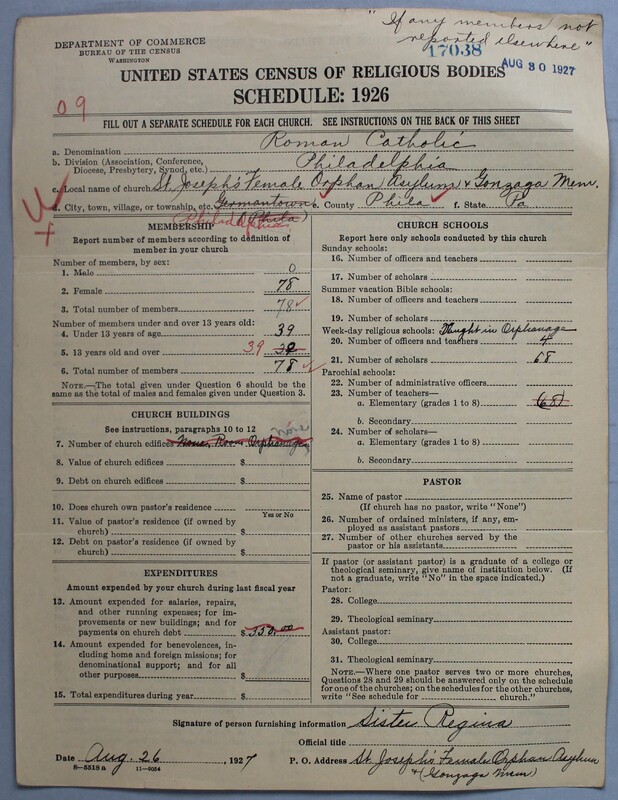 "If any members not
reported elsewhere"
DEPARTMENT OF COMMERCE
BUREAU OF THE CENSUS
WASHINGTON
17038
AUG 30 1927
UNITED STATES CENSUS OF RELIGIOUS BODIES
SCHEDULE: 1926
09
FILL OUT A SEPARATE SCHEDULE FOR EACH CHURCH. SEE INSTRUCTIONS ON THE BACK OF THIS SHEET
a. Denomination Roman Catholic
b. Division (Association, Conference, Diocese, Presbytery, Synod, etc.) Philadelphia
c. Local name of church St Joseph's Female Orphan Asylum & Gonzaga Mem.
d. City, town, village, or township, etc. Germantown e. County Phila f. State Pa
Philadelphia (Phila)
MEMBERSHIP
Report number of members according to definition of
member in your church
Number of members, by sex:
1. Male 0
2. Female 78
3. Total number of members 78
Number of members under and over 13 years old:
4. Under 13 years of age 39
5. 13 years old and over 39 39
6. Total number of members 78
NOTE.—The total given under Question 6 should be the
same as the total of males and females given under Question 3.
CHURCH BUILDINGS
See instructions, paragraphs 10 to 12
none
7. Number of church edifices None, Room Orphanage
8. Value of church edifices $
9. Debt on church edifices $
10. Does church own pastor's residence
Yes or No
11. Value of pastor's residence (if owned by
church) $
12. Debt on pastor's residence (if owned by
church) $
EXPENDITURES
Amount expended by your church during last fiscal year
13. Amount expended for salaries, repairs,
and other running expenses; for im-
provements or new buildings; and for
payments on church debt $ 550.00
14. Amount expended for benevolences, in-
cluding home and foreign missions; for
denominational support; and for all
other purposes $
15. Total expenditures during year $
CHURCH SCHOOLS
Report here only schools conducted by this church
Sunday schools:
16. Number of officers and teachers
17. Number of scholars
Summer vacation Bible schools:
18. Number of officers and teachers
19. Number of scholars
Week-day religious schools: Taught in Orphanage
20. Number of officers and teachers 4
21. Number of scholars 68
Parochial schools:
22. Number of administrative officers
23. Number of teachers—
a. Elementary (grades 1 to 8) (68)
b. Secondary
24. Number of scholars—
a. Elementary (grades 1 to 8)
b. Secondary
PASTOR
25. Name of pastor
(If church has no pastor, write "None")
26. Number of ordained ministers, if any, em-
ployed as assistant pastors
27. Number of other churches served by the
pastor or his assistants
If pastor (or assistant pastor) is a graduate of a college or
theological seminary, give name of institution below. (If
not a graduate, write "No" in the space indicated.)
Pastor:
28. College
29. Theological seminary
Assistant pastor:
30. College
31. Theological seminary
NOTE.—Where one pastor serves two or more churches,
Questions 28 and 29 should be answered only on the schedule
for one of the churches; on the schedules for the other churches,
write "See schedule for church."
Signature of person furnishing information Sister Regina
Official title
Date Aug. 26, 1927 P. O. Address St Joseph's Female Orphan Asylum
& (Gonzaga Mem)
8-5518a 11-9054